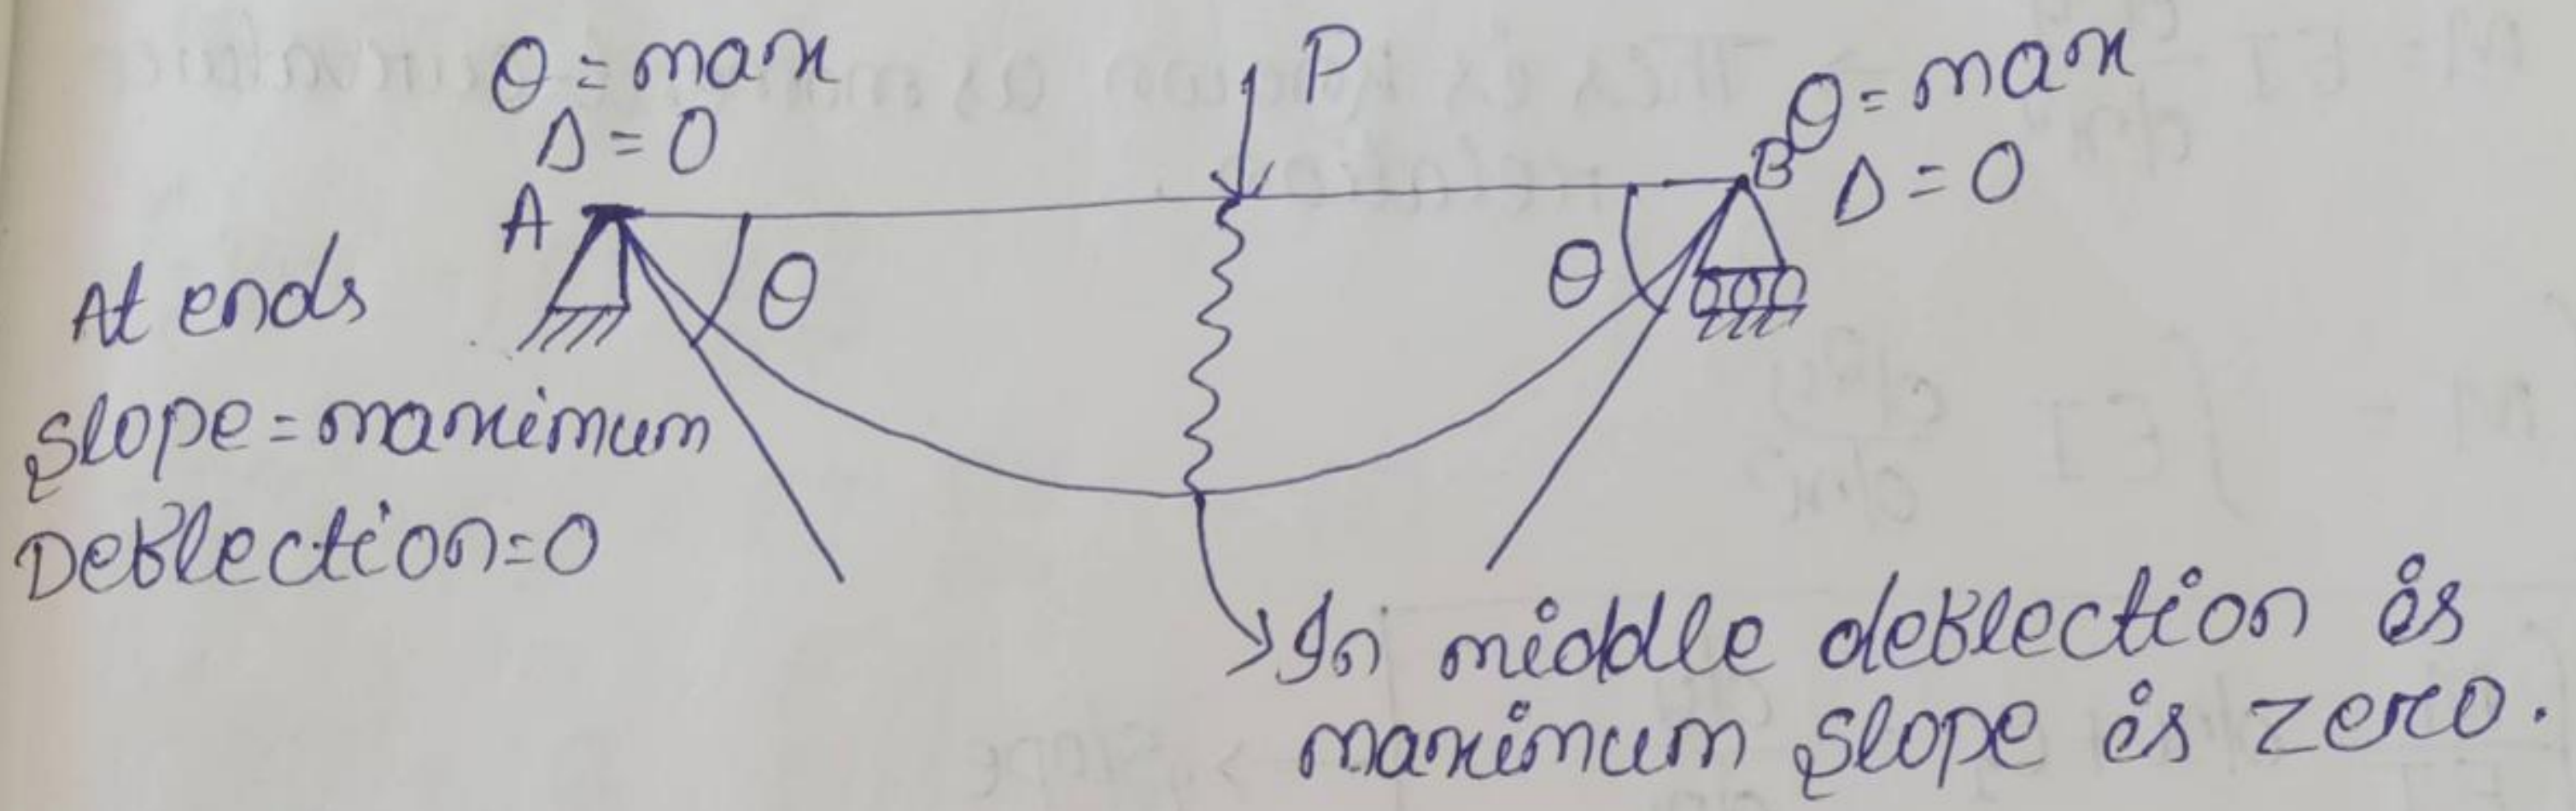 θ = max
Δ = 0
P
θ = max
Δ = 0
A
B
θ
θ
At ends
Slope = maximum
Deflection = 0
In middle deflection is
maximum slope is zero.